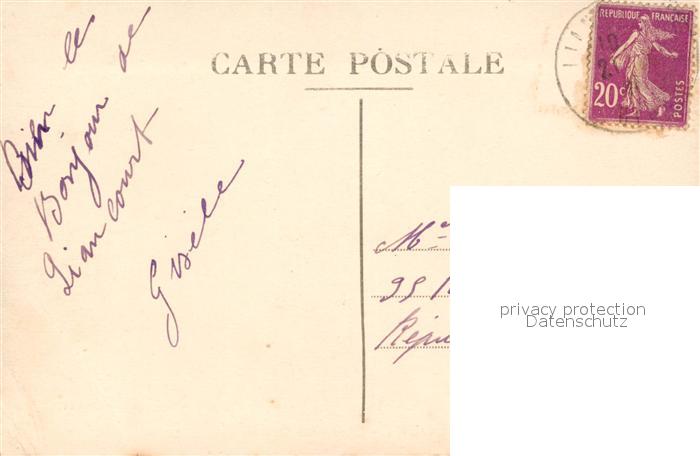 CARTE POSTALE
REPUBLIQUE FRANÇAISE
20c
POSTES
LIAN
Bien le
Bonjour de
Liancourt
Gisèle
privacy protection
Datenschutz